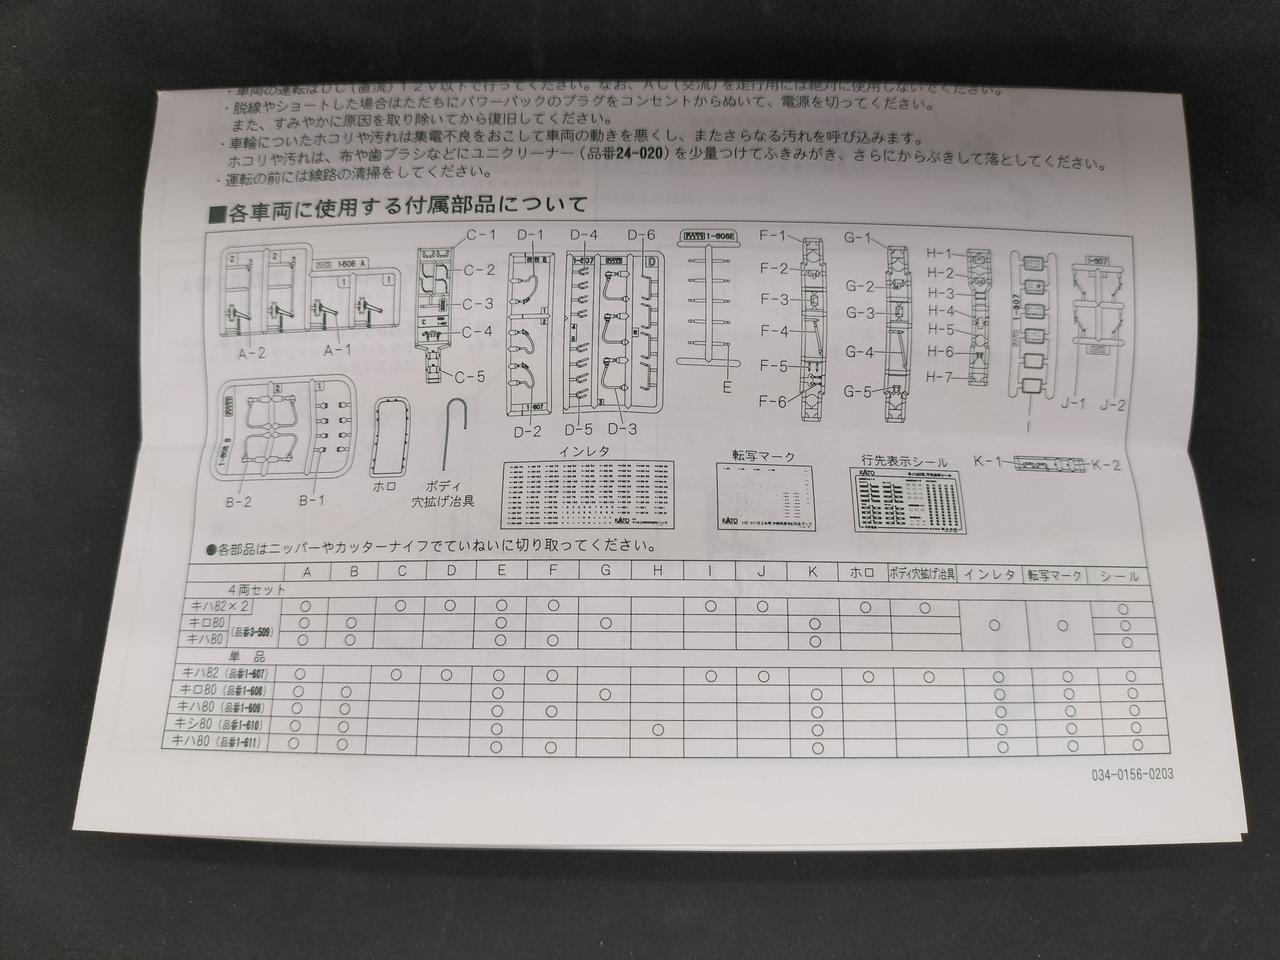 ・車両の運転はDC(直流)12V以下で行ってください。なお、AC(交流)を走行用には絶対に使用しないでください。
・脱線やショートした場合はただちにパワーパックのプラグをコンセントからぬいて、電源を切ってください。
また、すみやかに原因を取り除いてから復旧してください。
・車輪についたホコリや汚れは集電不良をおこして車両の動きを悪くし、またさらなる汚れを呼び込みます。
ホコリや汚れは、布や歯ブラシなどにユニクリーナー(品番24-020)を少量つけてふきみがき、さらにからぶきして落としてください。
・運転の前には線路の清掃をしてください。
■各車両に使用する付属部品について
C-1 D-1 D-4 D-6 1-608E F-1 G-1
2 2 1-608 A 1 1
A-2 A-1
C-2
C-3
C
C-4
C-5
1
2
1-607
D-2
1-607
D
3
D-5
D-3
E
F-2
F-3
F-4
F-5
F-6
G-2
G-3
G-4
G-5
H-1
H-2
H-3
H-4
H-5
H-6
H-7
1-607
1-607
J-1 J-2
2 1
1-608 B
B-2 B-1
ホロ
ボディ
穴拡げ冶具
インレタ
KATO
転写マーク
KATO
行先表示シール
KATO
K-1 K-2
●各部品はニッパーやカッターナイフでていねいに切り取ってください。
A B C D E F G H I J K ホロ ボディ穴拡げ冶具 インレタ 転写マーク シール
4両セット
キハ82×2 ○ ○ ○ ○ ○ ○ ○ ○ ○ ○
キロ80 (品番3-509) ○ ○ ○ ○ ○ ○ ○ ○
キハ80 ○ ○ ○ ○ ○ ○
単 品
キハ82(品番1-607) ○ ○ ○ ○ ○ ○ ○ ○ ○ ○ ○ ○
キロ80(品番1-608) ○ ○ ○ ○ ○ ○ ○ ○
キハ80(品番1-609) ○ ○ ○ ○ ○ ○ ○ ○
キシ80(品番1-610) ○ ○ ○ ○ ○ ○ ○ ○
キハ80(品番1-611) ○ ○ ○ ○ ○ ○ ○ ○
034-0156-0203